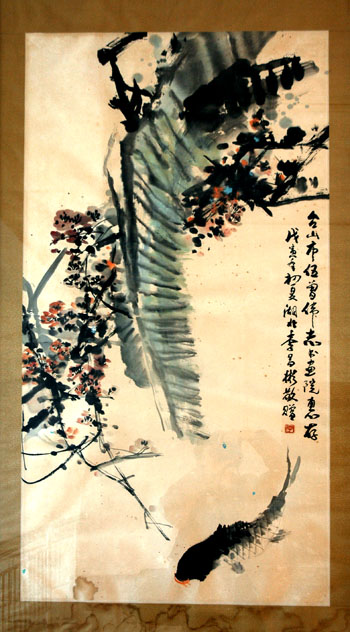 台山市伍曾伟志书画院惠存
戊寅年初夏湖北李昌彬敬赠